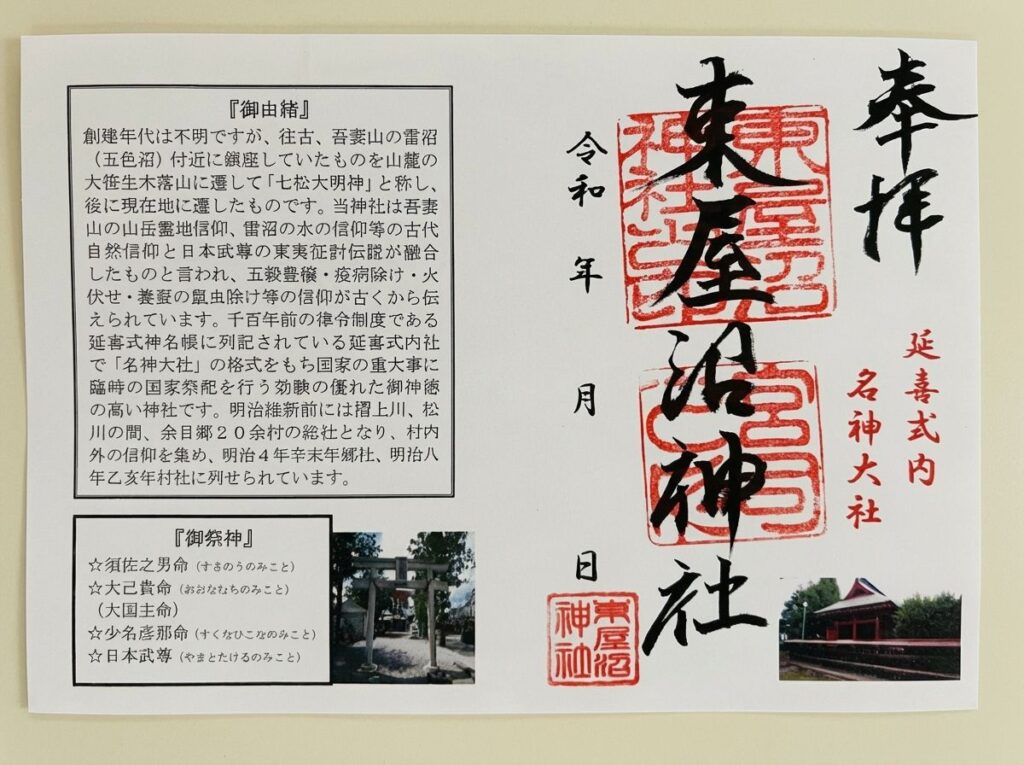 奉拝
延喜式内
名神大社
東屋沼神社
令和 年 月 日
東屋沼
神社
『御由緒』
創建年代は不明ですが、往古、吾妻山の雷沼
（五色沼）付近に鎮座していたものを山麓の
大笹生木落山に遷して「七松大明神」と称し、
後に現在地に遷したものです。当神社は吾妻
山の山岳霊地信仰、雷沼の水の信仰等の古代
自然信仰と日本武尊の東夷征討伝説が融合
したものと言われ、五穀豊穣・疫病除け・火
伏せ・養蚕の鼠虫除け等の信仰が古くから伝
えられています。千百年前の律令制度である
延喜式神名帳に列記されている延喜式内社
で「名神大社」の格式をもち国家の重大事に
臨時の国家祭配を行う効験の優れた御神徳
の高い神社です。明治維新前には摺上川、松
川の間、余目郷２０余村の総社となり、村内
外の信仰を集め、明治４年辛未年郷社、明治八
年乙亥年村社に列せられています。
『御祭神』
☆須佐之男命（すさのうのみこと）
☆大己貴命（おおなむちのみこと）
（大国主命）
☆少名彦那命（すくなひこなのみこと）
☆日本武尊（やまとたけるのみこと）